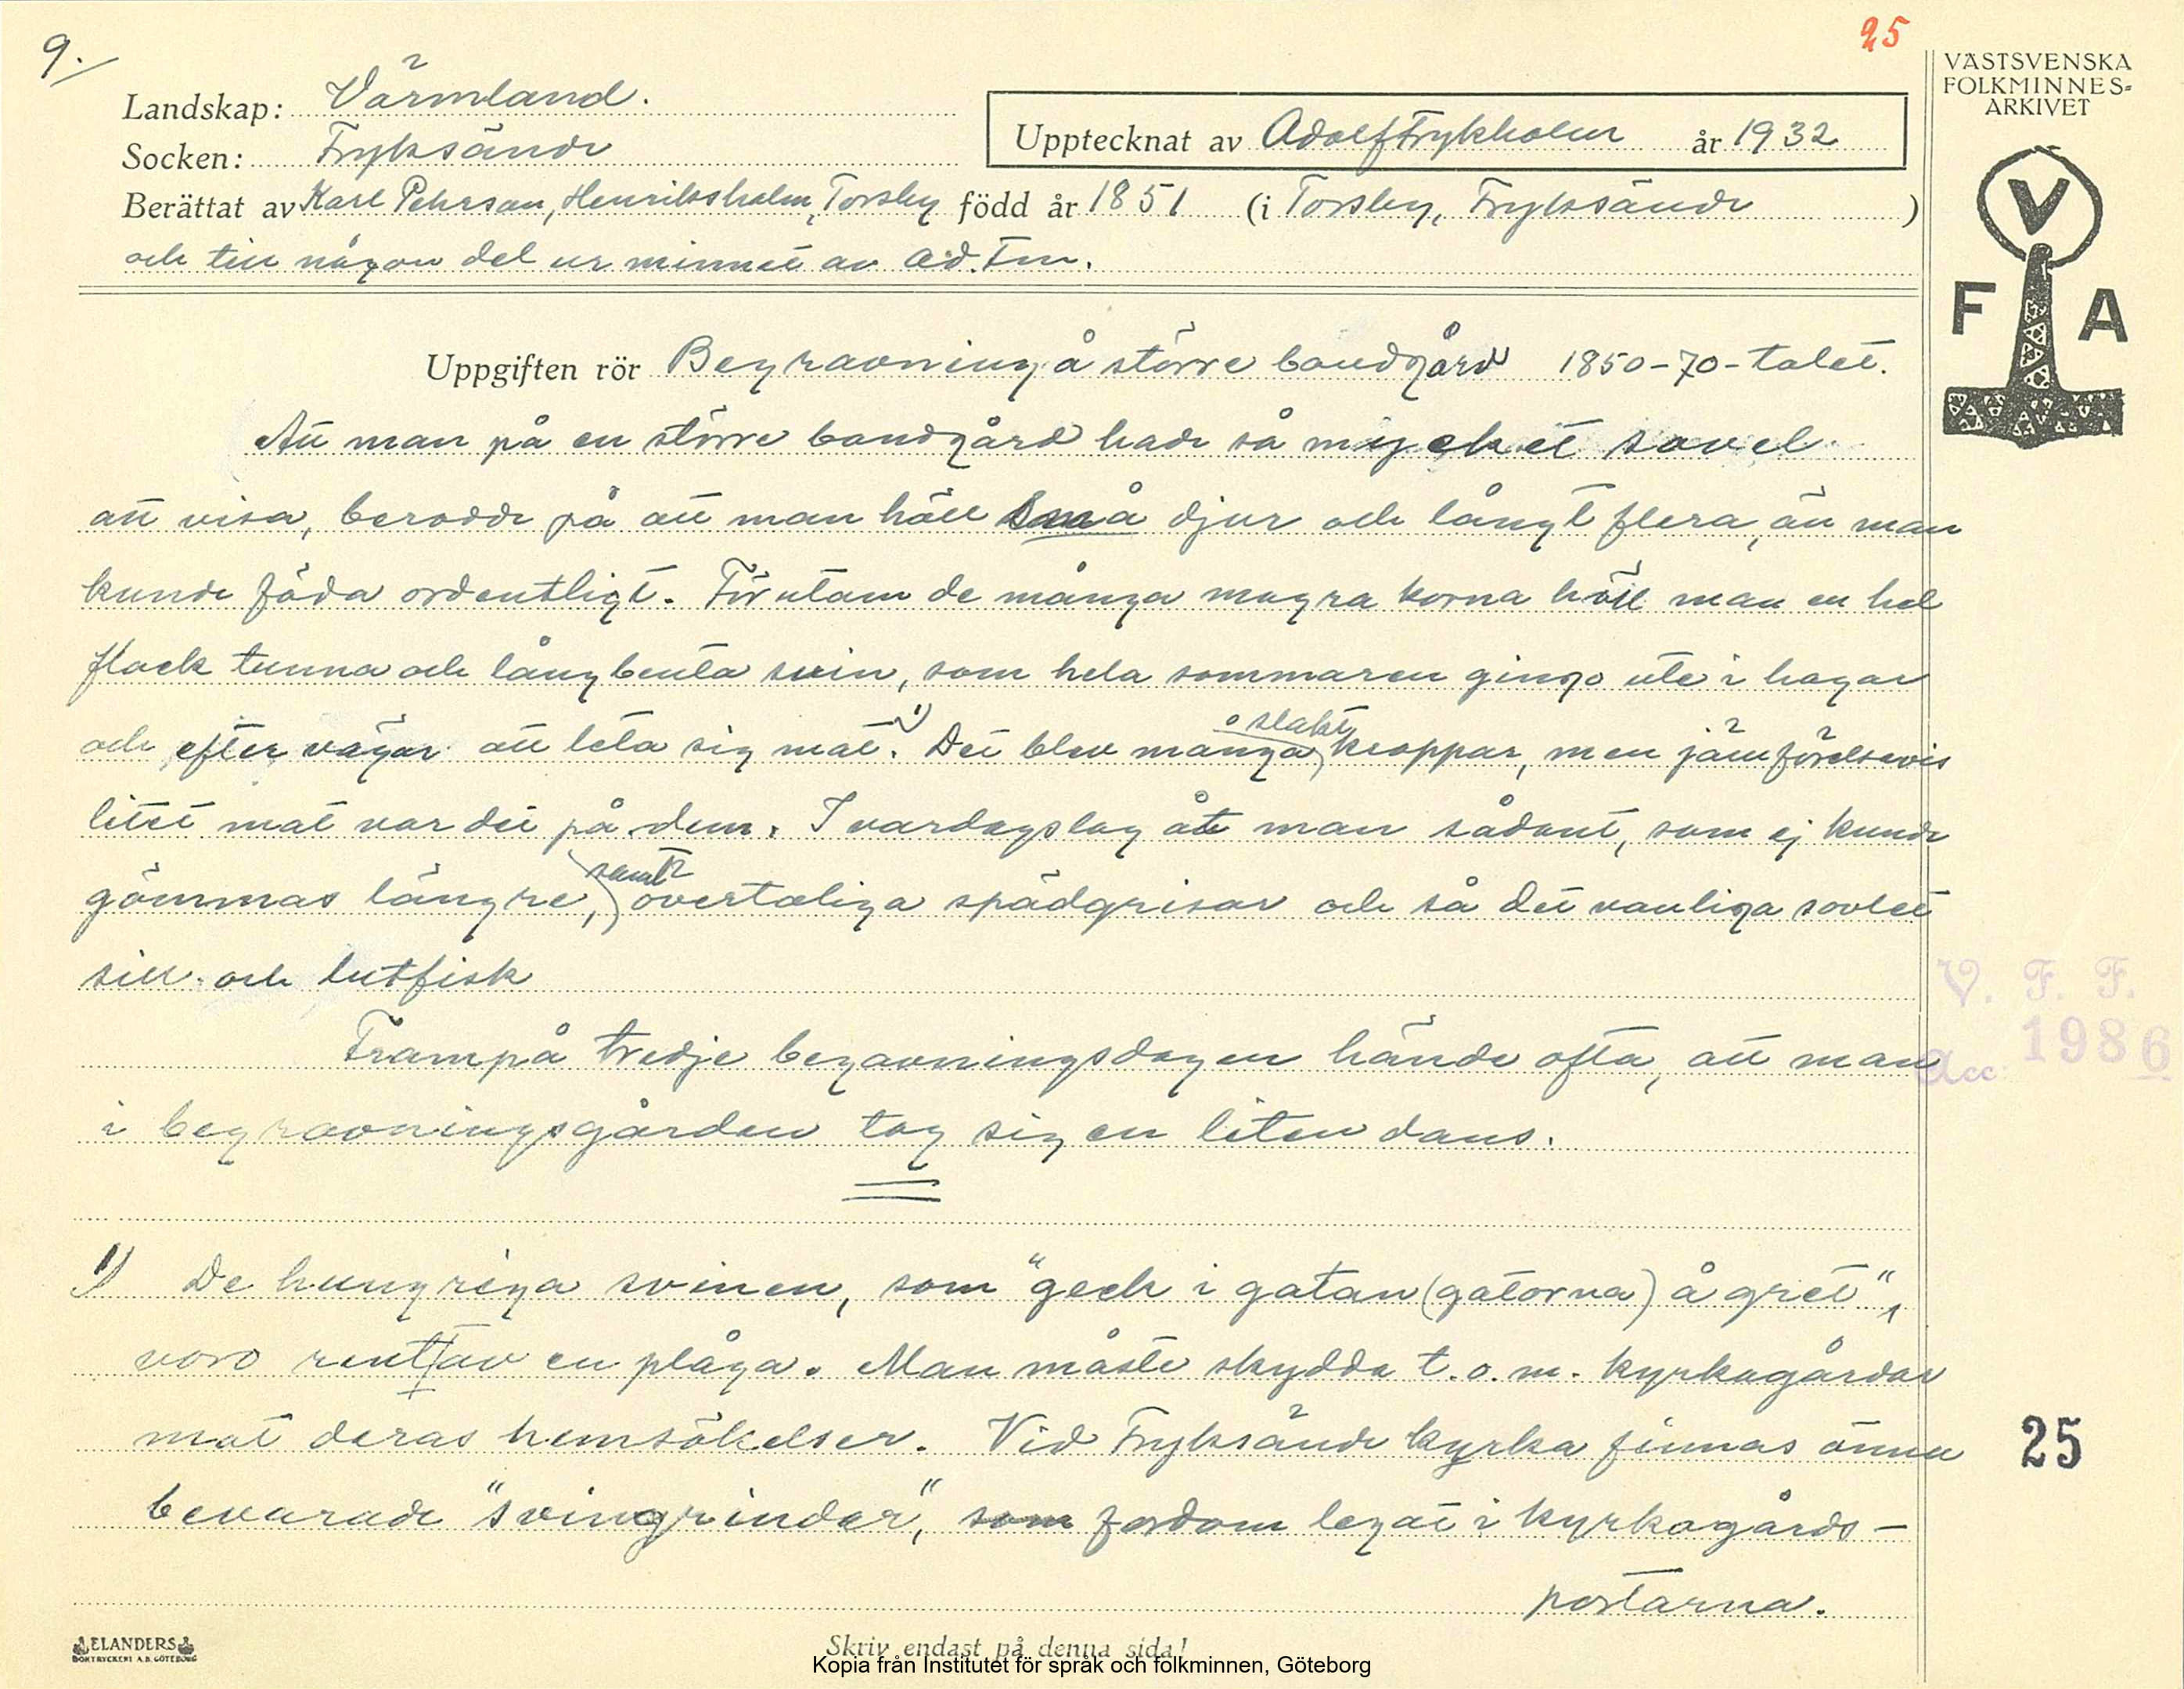 9.
25
VÄSTSVENSKA
FOLKMINNES-
ARKIVET
Landskap: Värmland.
Socken: Fryksände
Upptecknat av Adolf Frykholm år 1932
Berättat av Karl Pehrson, Henriksholm, Torsby född år 1851 (i Torsby, Fryksände )
och till någon del ur minnet av Ad. Fm.
V
F A
Uppgiften rör Begravning å större bondgård 1850-70-talet.
Att man på en större bondgård hade så mycket sovel
att visa, berodde på att man höll små djur och långt flera, än man
kunde föda ordentligt. Förutom de många magra korna höll man en hel
flock tunna och långbenta svin, som hela sommaren gingo ute i hagar
och efter vägar att leta sig mat.¹⁾ Det blev många slaktkroppar, men jämförelsevis
litet mat var det på dem. I vardagslag åt man sådant, som ej kunde
gömmas längre, samt övertaliga spädgrisar och så det vanliga sovlet
sill och lutfisk
Frampå tredje begavningsdagen hände ofta, att man
i begravningsgården tog sig en liten dans.
V. F. F.
Acc: 1986
1) De hungriga svinen, som "geck i gatan (gatorna) å gret",
voro rent av en plåga. Man måste skydda t.o.m. kyrkogårdar
mot deras hemsökelser. Vid Fryksände kyrka finnas ännu
bevarade "svingrinder", som fordom legat i kyrkogårds-
portarna.
25
ELANDERS
BOKTRYCKERI A.B. GÖTEBORG
Skriv endast på denna sida!
Kopia från Institutet för språk och folkminnen, Göteborg